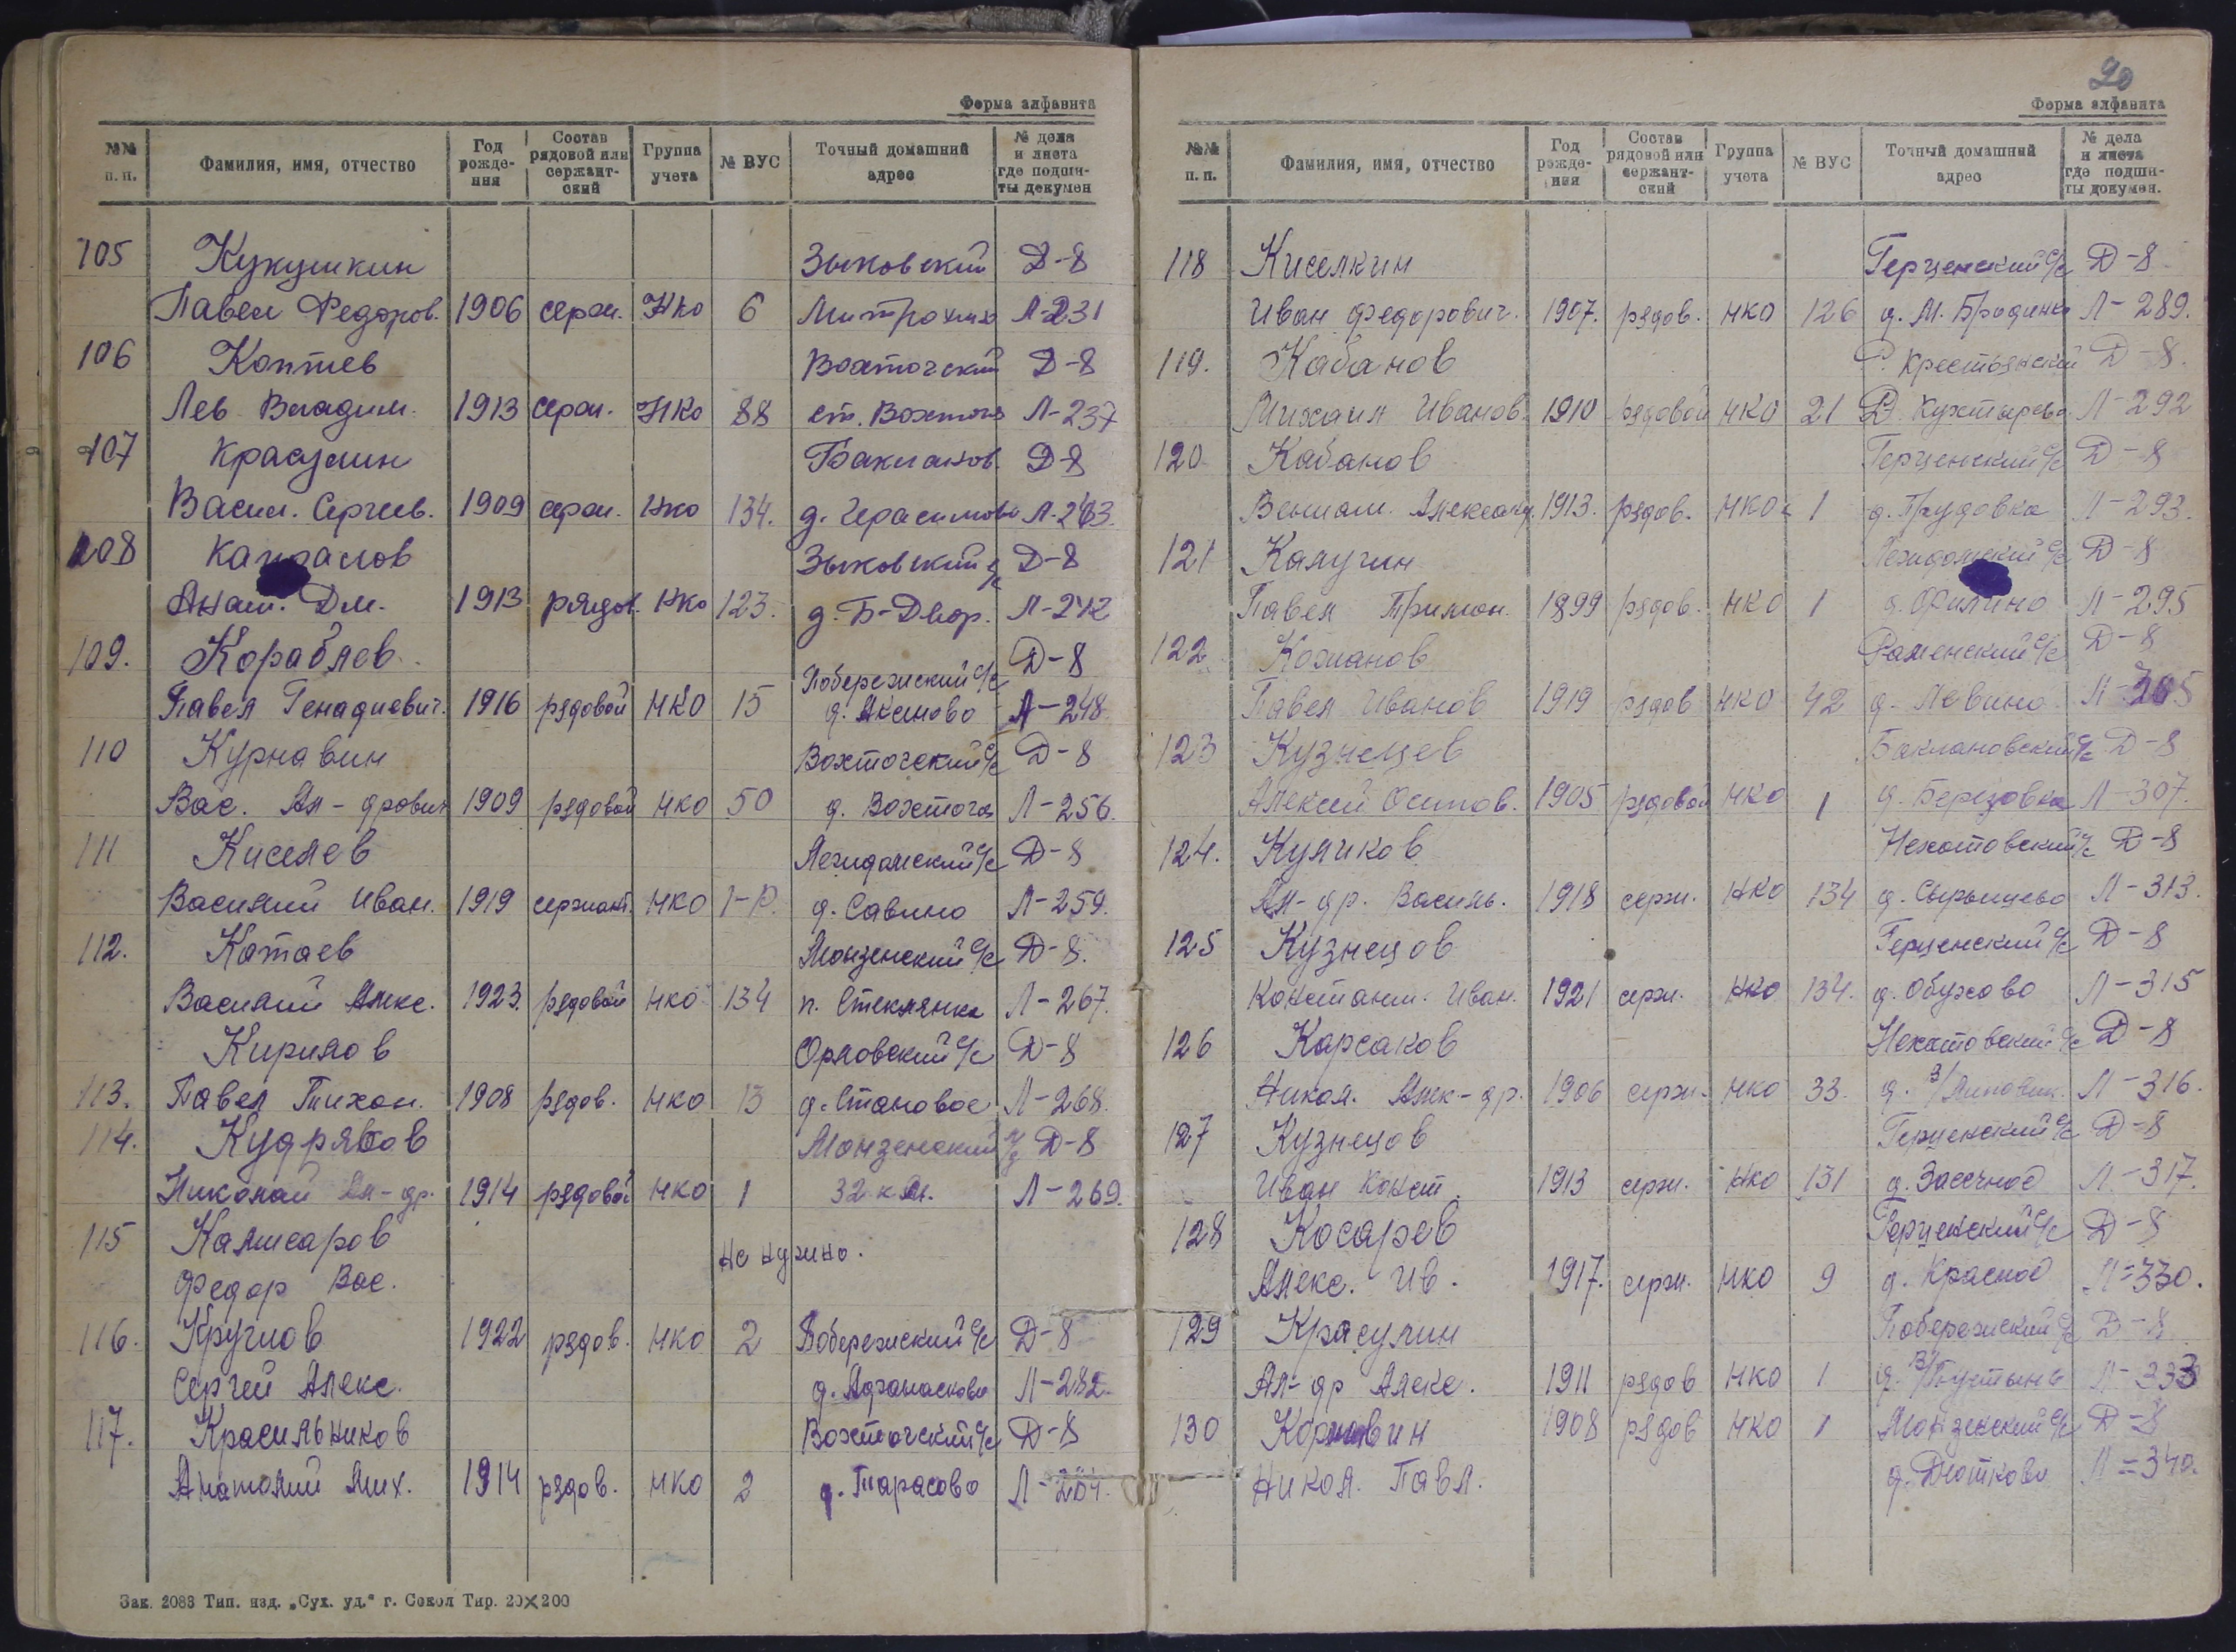 Форма алфавита
№№ п. п. Фамилия, имя, отчество Год рожде-ния Состав рядовой или сержант-ский Группа учета № ВУС Точный домашний адрес № дела и листа где подши-ты докумен
105 Кукушкин Зыковский Д-8
Павел Федоров. 1906 серж. НКО 6 Л-231
106 Коптев Вохтогский Д-8
Лев Владим. 1913 серж. НКО 88 ст. Вохтога Л-237
107 Красулин Баклановс. Д-8
Васил. Сергеев. 1909 серж. НКО 134. д. Герасимово Л-263.
108 Капралов Зыковский с/с Д-8
Анат. Дм. 1913 рядов. НКО 123. д. Б-Двор. Л-242
109. Кораблев Побережский с/с Д-8
Павел Генадиевич. 1916 рядовой НКО 15 д. Аксеново Л-248
110 Курнавин Вохтогский с/с Д-8
Вас. Ал-дрович 1909 рядовой НКО 50 д. Вохтога Л-256.
111 Киселев Лежидомский с/с Д-8
Василий Иван. 1919 сержант. НКО 1-Р. д. Савино Л-259.
112. Катаев Монзенский с/с Д-8.
Василий Алекс. 1923. рядовой НКО 134 п. Стеклянка Л-267.
Кирилов Орловский с/с Д-8
113. Павел Тихон. 1908 рядов. НКО 13 д. Становое Л-268.
114. Кудряков Монзенский Д-8
Николай Ал-др. 1914 рядовой НКО 1 32 кв. Л-269.
115 Калисаров Не нужно.
Федор Вас.
116. Круглов 1922 рядов. НКО 2 Побережский с/с Д-8
Сергей Алекс. д. Афанасково Л-282.
117. Красильников Вохтогский с/с Д-8
Анатолий Мих. 1914 рядов. НКО 2 д. Тарасово Л-284.
Зак. 2083 Тип. изд. „Сух. уд.“ г. Сокол Тир. 20×200
20
Форма алфавита
№№ п. п. Фамилия, имя, отчество Год рожде-ния Состав рядовой или сержант-ский Группа учета № ВУС Точный домашний адрес № дела и листа где подши-ты докумен.
118 Киселкин Герценский с/с Д-8
Иван Федорович. 1907. рядов. НКО 126 д. М. Бродинка Л-289.
119. Кабанов Р. Крестьянский Д-8.
Михаил Иванов. 1910 рядовой НКО 21 Д. Кухтырево Л-292
120 Кабанов Герценский с/с Д-8
Вениам. Александ. 1913. рядов. НКО 1 д. Прудовка Л-293.
121 Калугин Лежидомский с/с Д-8
Павел Филимон. 1899 рядов. НКО 1 д. Филино Л-295
122 Кожанов Раменский с/с Д-8
Павел Иванов 1919 рядов НКО 42 д. Левино Л-305
123 Кузнецев Баклановский с/с Д-8
Алексей Осипов. 1905 рядовой НКО 1 д. Березовка Л-307.
124. Куликов Нехотовский с/с Д-8
Ал-др. Василь. 1918 серж. НКО 134 д. Сырынцево Л-313.
125 Кузнецов Герценский с/с Д-8
Константи. Иван. 1921 серж. НКО 134. д. Обухово Л-315
126 Карсаков Нехотовский с/с Д-8
Никол. Алек-др. 1906 серж. НКО 33. д. Л-316.
127 Кузнецов Герценский с/с Д-8
Иван Конст. 1913 серж. НКО 131 д. Засечное Л-317.
128 Косарев Герценский с/с Д-8
Алекс. Ив. 1917. серж. НКО 9 д. Красное Л-330.
129 Красулин Побережский с/с Д-8
Ал-др Алекс. 1911 рядов НКО 1 д. П/Пустынь Л-333
130 Корнавин 1908 рядов НКО 1 Монзенский с/с Д-8
Никол. Павл. д. Дютково Л-340.